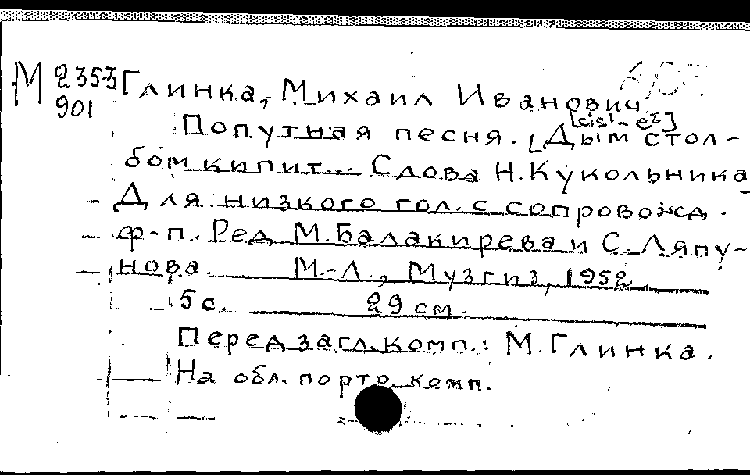 М 235-3 Глинка, Михаил Иванович
901 [cis1-e2]
Попутная песня. [Дым стол-
бом кипит... Слова Н. Кукольника
Для низкого гол. с сопровожд.
ф-п. Ред. М. Балакирева и С. Ляпу-
нова М.-Л., Музгиз, 1952
5 с. 29 см.
Перед загл. комп.: М. Глинка.
На обл. портр. комп.